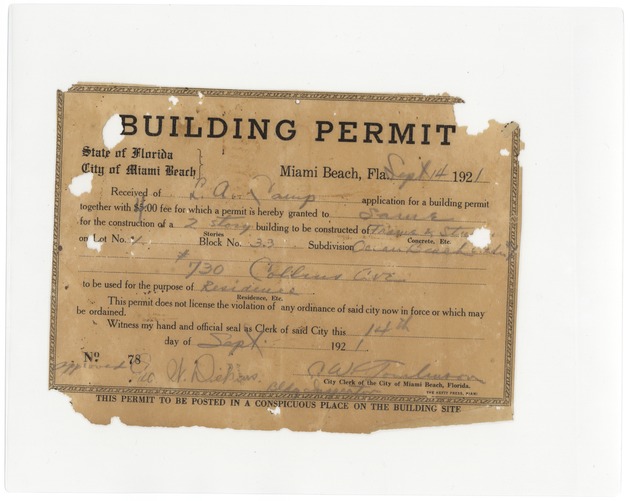 BUILDING PERMIT
State of Florida
City of Miami Beach
Miami Beach, Fla. Sept 14 1921
Received of L. A. Camp application for a building permit
together with $5.00 fee for which a permit is hereby granted to Same
for the construction of a 2 story building to be constructed of Frame &
Stories Concrete, Etc.
on Lot No. 4 Block No. 33 Subdivision Ocean Beach
#730 Collins Ave
to be used for the purpose of Residence
Residence, Etc.
This permit does not license the violation of any ordinance of said city now in force or which may
be ordained.
Witness my hand and official seal as Clerk of said City this 14th
day of Sept 1921
No 78
approved W. Dickens C W Tomlinson
City Clerk of the City of Miami Beach, Florida.
Bldg Inspector THE HEFTY PRESS, MIAMI
THIS PERMIT TO BE POSTED IN A CONSPICUOUS PLACE ON THE BUILDING SITE